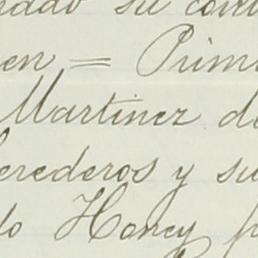 su
en = Prim
Martinez d
erederos y su
do Honey p